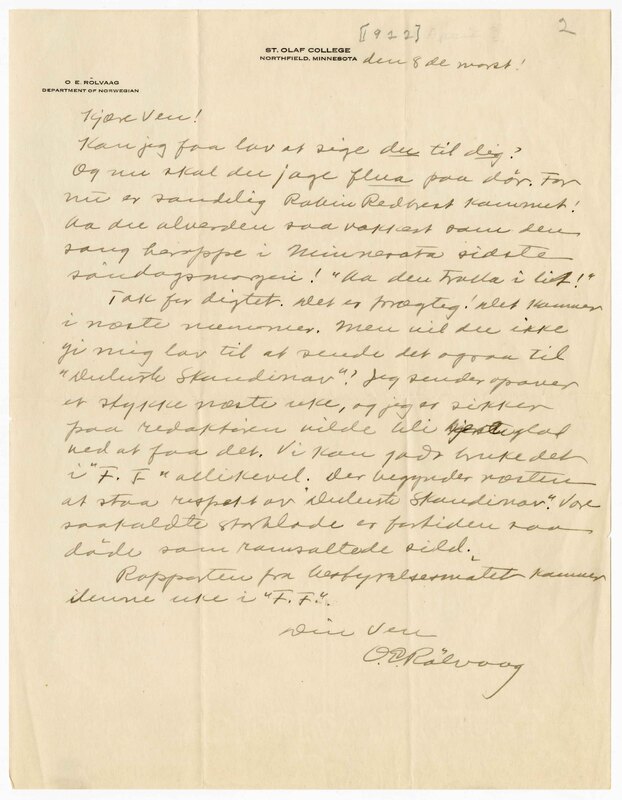 [1922]
2
ST. OLAF COLLEGE
NORTHFIELD, MINNESOTA
den 8de marst!
O. E. RÖLVAAG
DEPARTMENT OF NORWEGIAN
Kjære Ven!
Kan jeg faa lov at sige du til dig?
Og nu skal du jage flua paa dör. For
nu er sandelig Robin Redbrest kommet!
Aa du alverden saa vakkert som den
sang heroppe i Minnesota sidste
söndagsmorgen! "Aa den tralla i lit!"
Tak for digtet. Det er prægtig! Det kommer
i næste nummer. Men vil du ikke
gi mig lov til at sende det ogsaa til
"Duluth Skandinav"? Jeg sender opover
et stykke næste uke, og jeg er sikker
paa redaktören vilde bli glad
ved at faa det. Vi kan godt bruke det
i "F. F" allikevel. Der begynder næsten
at staa respekt av "Duluth Skandinav". Vore
saakaldte storblade er fortiden saa
döde som ramsaltede sild.
Rapporten fra bestyrelsesmötet kommer
i denne uke i "F.F.".
Din Ven
O.E. Rölvaag